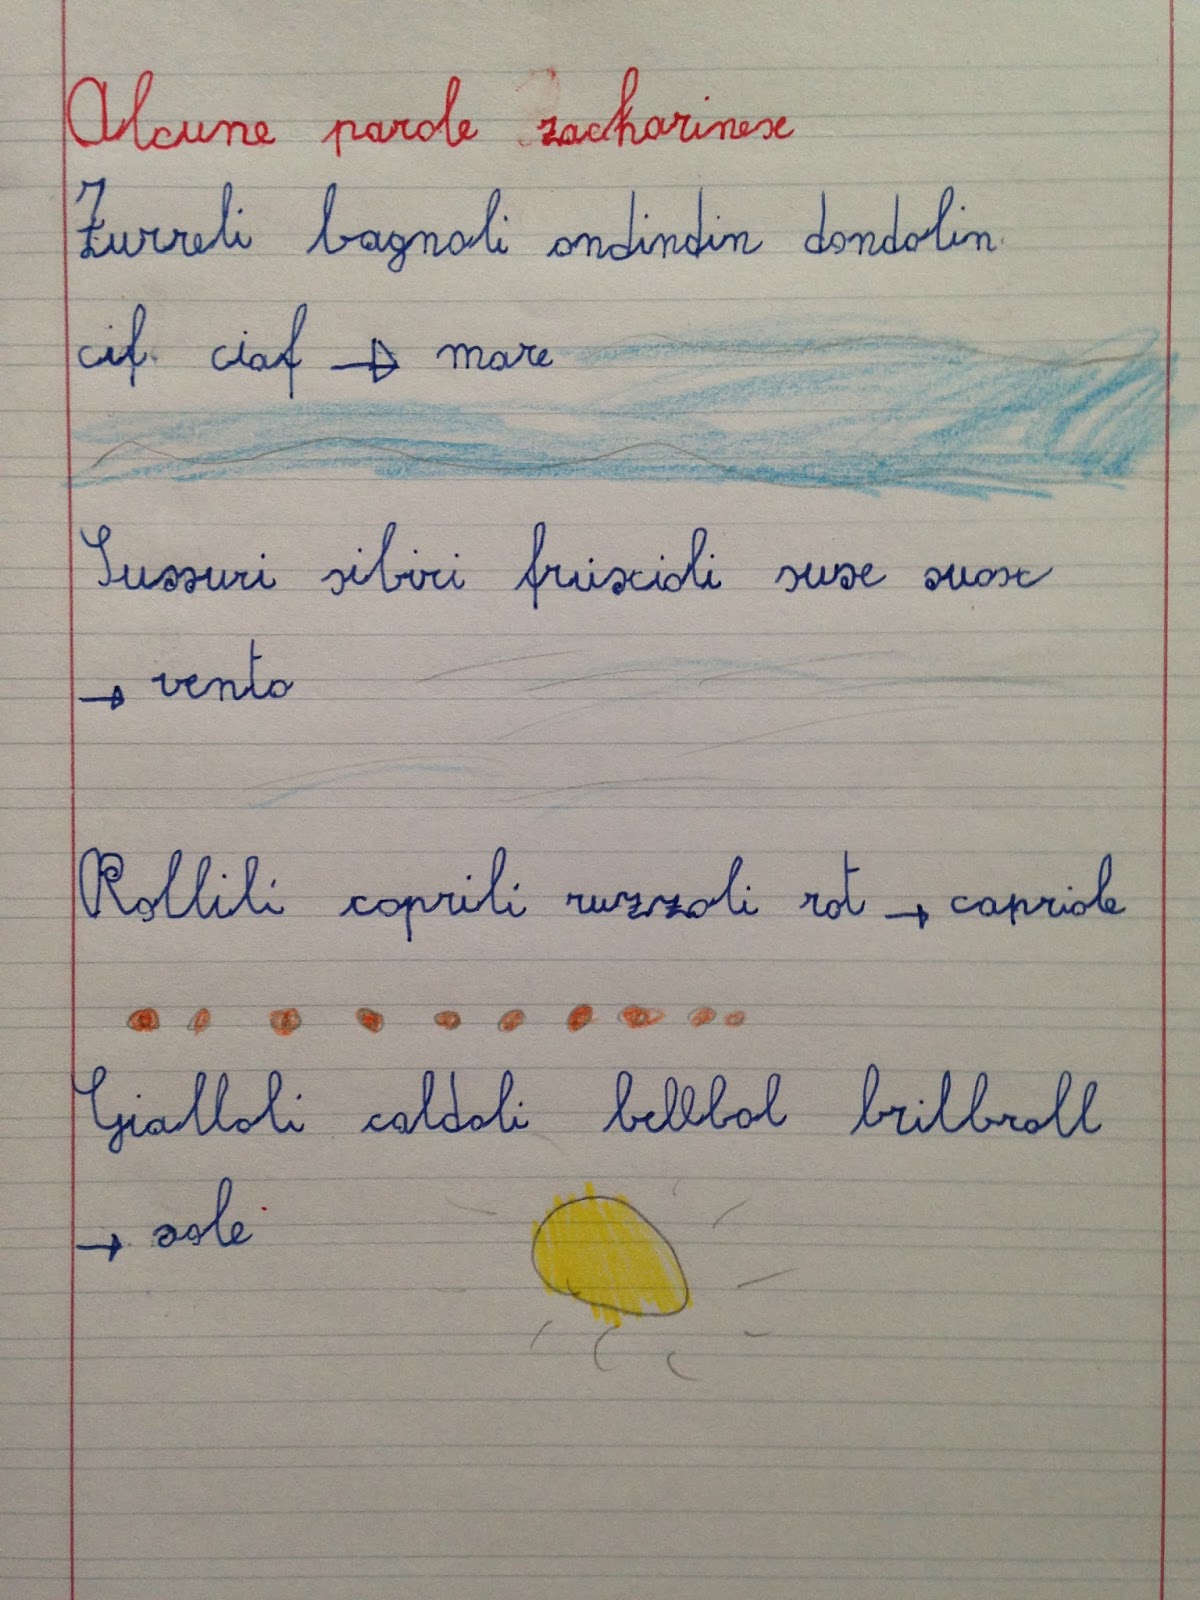 Alcune parole zacharinese
Zurreli bagnoli ondindin dondolin
cif ciaf → mare
Sussuri sibiri fruscioli suse suos
→ vento
Rollili coprili ruzzoli rot → capriole
Gialloli caldoli bellbol brilbroll
→ sole